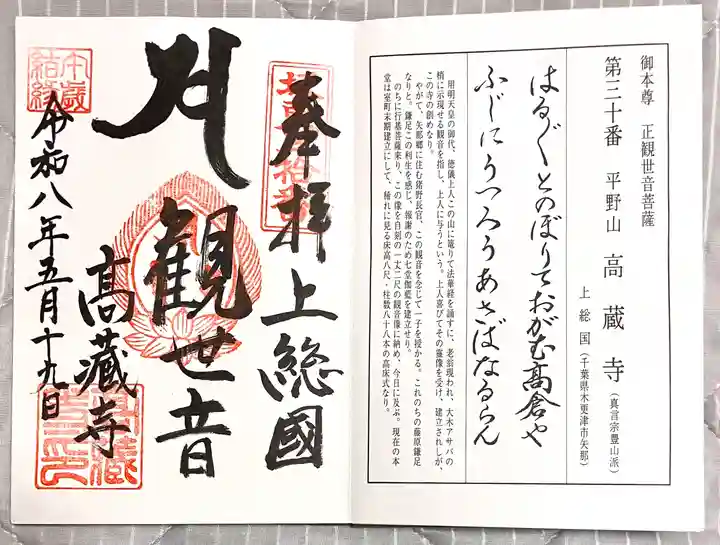 御本尊 正観世音菩薩
第三十番 平野山 高蔵寺(真言宗豊山派)
上総国(千葉県木更津市矢那)
はる〴〵とのぼりておがむ高倉や
ふじにうつろうあさばなるらん
用明天皇の御代、徳儀上人この山に篭りて法華経を誦すに、老翁現われ、大木アサバの
梢に示現せる観音を指し、上人に与うという。上人喜びてその霊像を受け、建立されしが、
この寺の創めなり。
やがて、矢那郷に住む猪野長官、この観音を念じて一子を授かる。これのちの藤原鎌足
なりと。鎌足この利生を感じ、報謝のため七堂伽藍を建立せり。
のちに行基菩薩来り、この像を自刻の一丈二尺の観音像に納め、今日に及ぶ。現在の本
堂は室町末期建立にして、稀れに見る床高八尺・柱数八十八本の高床式なり。
奉拝 上總國
観世音
高藏寺
令和八年五月十九日
午歳
結縁